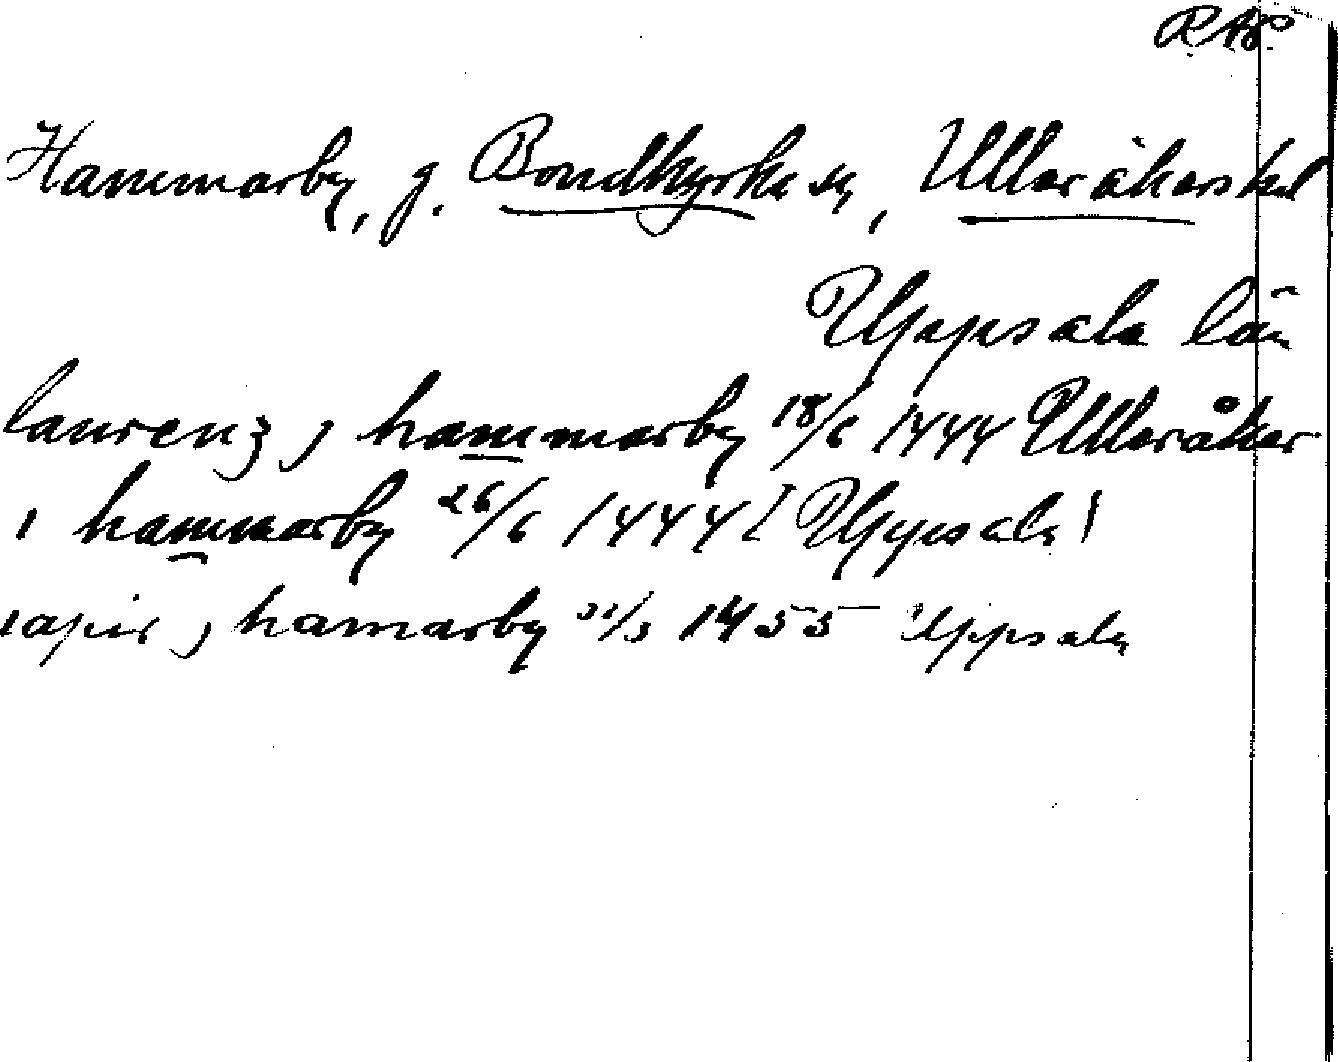 RAP
Hammarby, g. Bondkyrka sn, Ulleråkers hd
Uppsala län
laurenz j hammarby 18/6 1444 Ulleråker
i hammarby 26/6 1444 [Uppsala]
j hamarby 1455 Uppsala